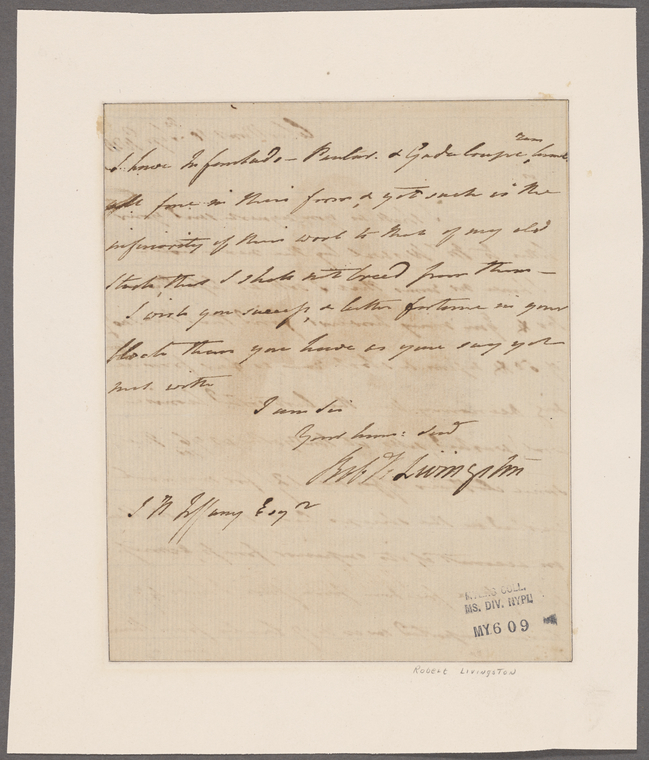 I have Infantado - Paular & Guadeloupe rams
fine in their form, & yet such is the
inferiority of their wool to that of my old
Stock, that I shall not breed from them -
I wish you success, & better fortune in your
flock than you have as you say yet
met with
I am Sir
Your hum: Servt
Robt R Livingston
Tiffany Esqr
MYERS COLL.
MS. DIV. NYPL
MY 6 09
ROBERT LIVINGSTON